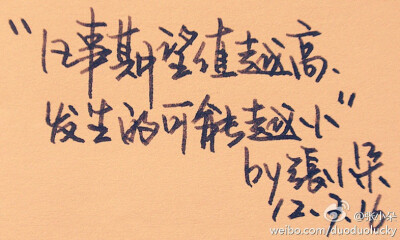 “凡事期望值越高、
发生的可能越小”
by 張小朵
12.3.16
@张小朵
weibo.com/duoduolucky